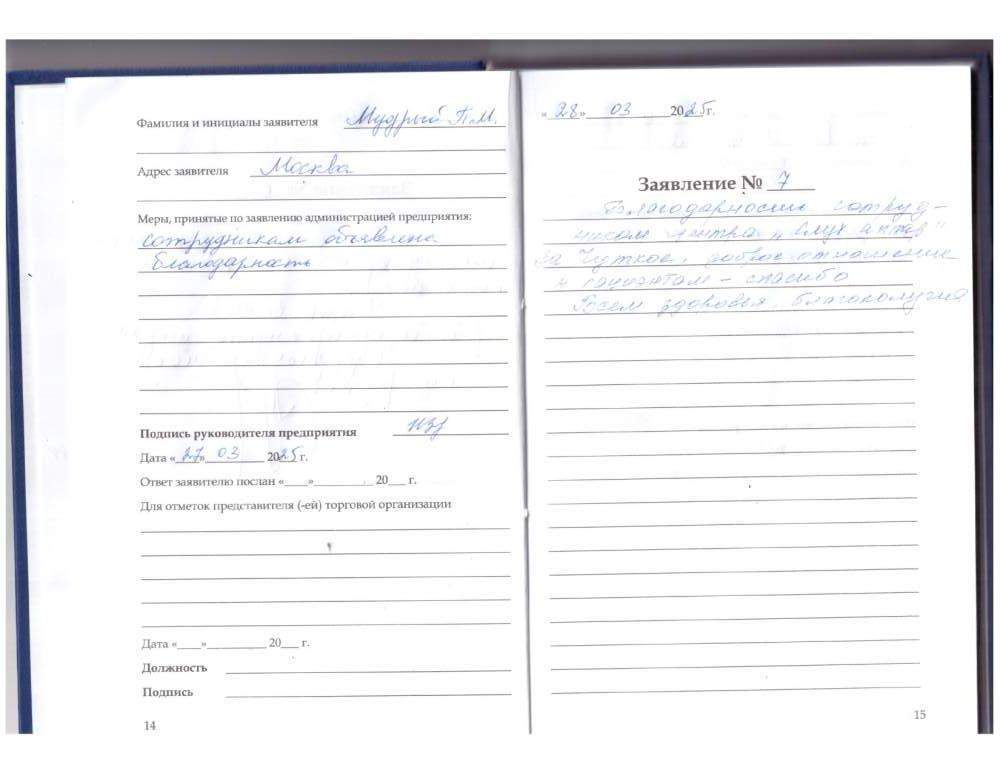 Фамилия и инициалы заявителя Мудрый П.М.
Адрес заявителя Москва
Меры, принятые по заявлению администрацией предприятия:
сотрудникам объявлена
благодарность
Подпись руководителя предприятия
Дата «27» 03 2025 г.
Ответ заявителю послан «___»__________ 20___ г.
Для отметок представителя (-ей) торговой организации
Дата «____»__________ 20___ г.
Должность
Подпись
14
«28» 03 2025г.
Заявление № 7
Благодарности сотруд-
никам центра „Слух
за чуткое, доброе отношение
к пациентам – спасибо
Всем здоровья, благополучия
15